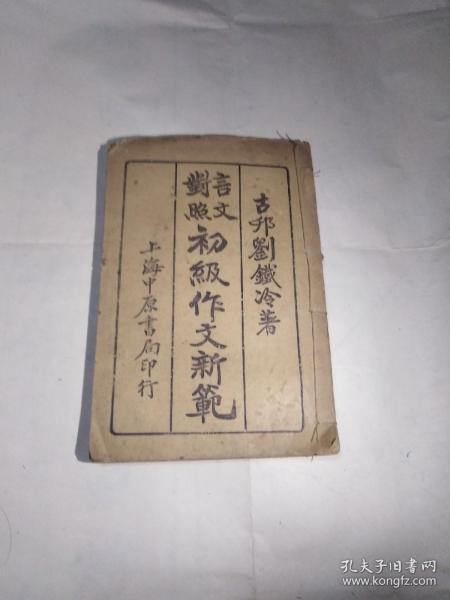 古邗劉鐵冷著
言文對照
初級作文新範
上海中原書局印行
孔夫子旧书网
www.kongfz.com